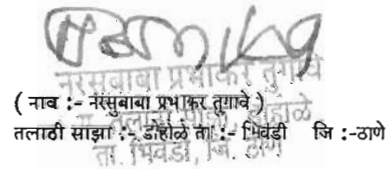 नरसुबाबा प्रभाकर तुगावे
( नाव :- नरसुबाबा प्रभाकर तुगावे )
तलाठी साझा :- डोहोळे ता :- भिवंडी जि :-ठाणे
ता. भिवंडी, जि. ठाणे